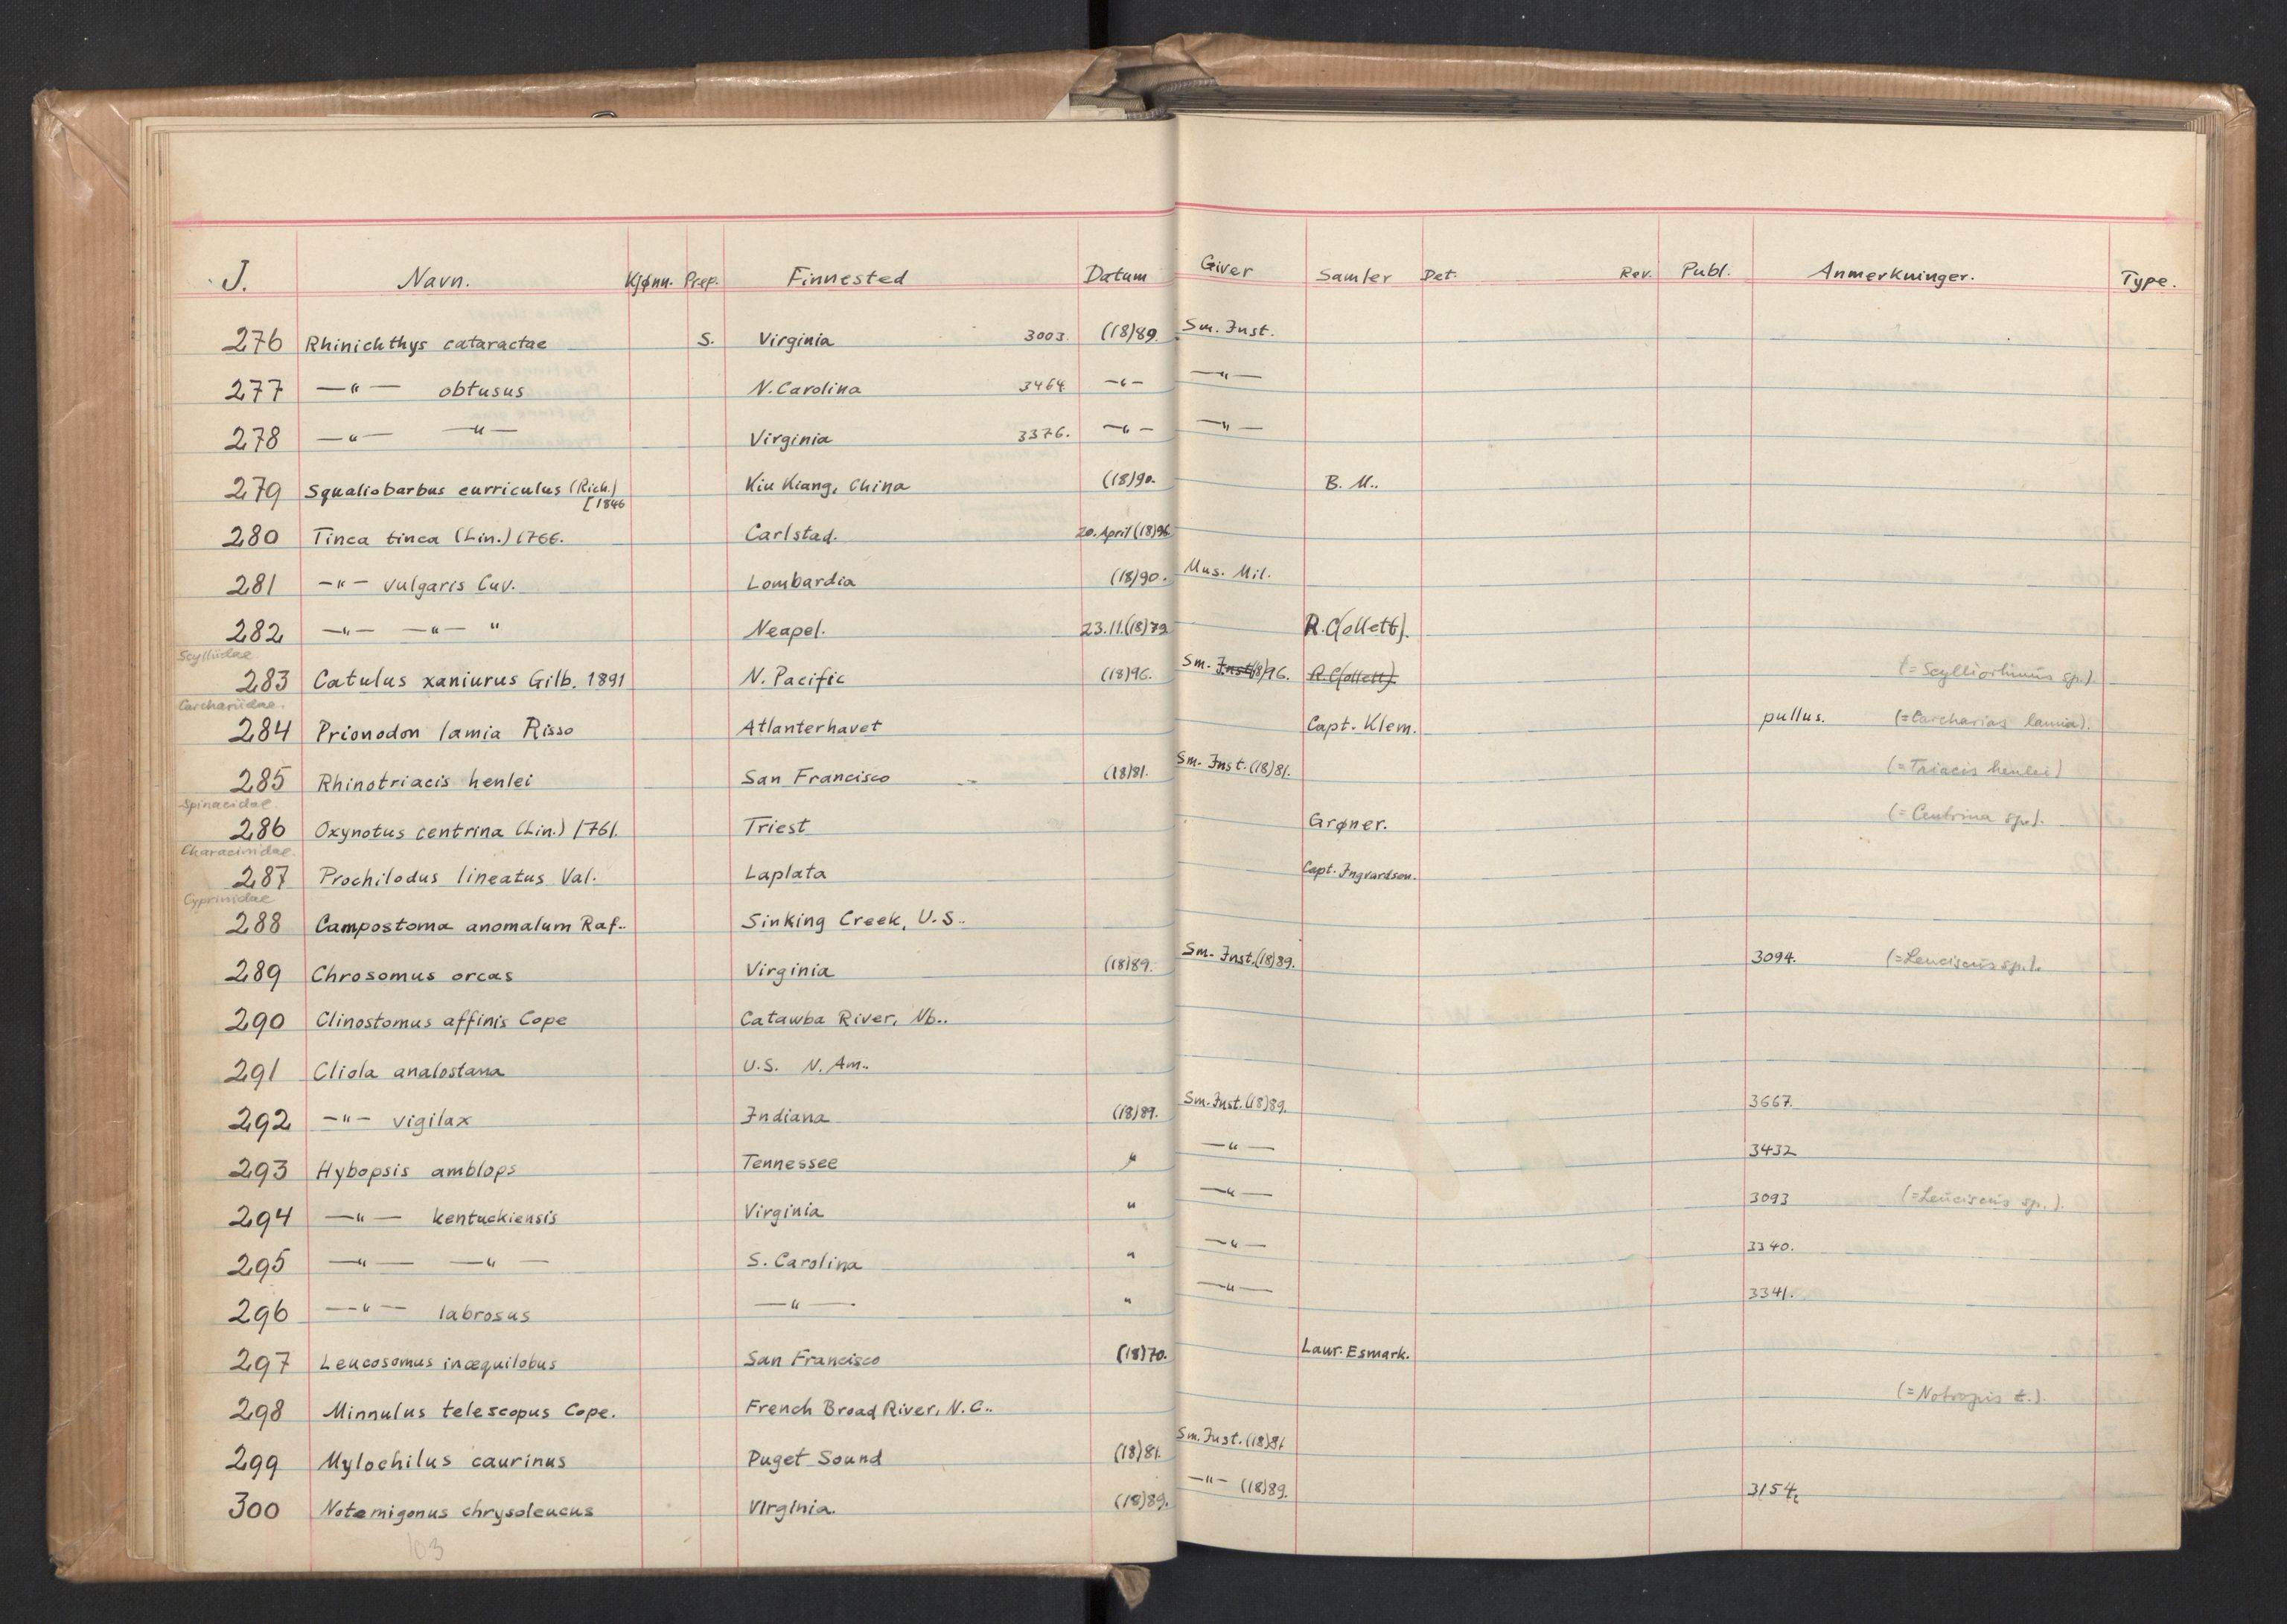 J. Navn. Kjønn. Prep. Finnested Datum Giver Samler Det. Rev. Publ. Anmerkninger. Type.
276 Rhinichthys cataractae S. Virginia 3003. (18)89. Sm. Inst.
277 —"— obtusus N. Carolina 3464 —"— —"—
278 —"— —"— Virginia 3376. —"— —"—
279 Squaliobarbus curriculus (Rich.) Kiu Kiang, China (18)90. B. M..
[1846
280 Tinca tinca (Lin.) 1766. Carlstad. 20. April (18)96
281 —"— vulgaris Cuv. Lombardia (18)90. Mus. Mil.
282 —"— —"— " Neapel. 23.11.(18)79 R. C(ollett).
Scylliidae
283 Catulus xaniurus Gilb. 1891 N. Pacific (18)96. Sm. Inst (18)96. R. C(ollett). (=Scylliorhinus sp.).
Carchariidae.
284 Prionodon lamia Risso Atlanterhavet Capt. Klem. pullus. (=Carcharias lamia).
285 Rhinotriacis henlei San Francisco (18)81. Sm. Inst. (18)81. (=Triacis henlei)
Spinacidae
286 Oxynotus centrina (Lin.) 1761. Triest Grøner. (=Centrina sp.).
Characinidae.
287 Prochilodus lineatus Val. Laplata Capt. Ingvardsen.
Cyprinidae
288 Campostoma anomalum Raf.. Sinking Creek, U.S..
289 Chrosomus orcas Virginia (18)89. Sm. Inst. (18)89. 3094. (=Leuciscus sp.).
290 Clinostomus affinis Cope Catawba River, Nb..
291 Cliola analostana U.S. N. Am..
292 —"— vigilax Indiana (18)89. Sm. Inst. (18)89. 3667.
293 Hybopsis amblops Tennessee " —"— 3432
294 —"— kentuckiensis Virginia " —"— 3093 (=Leuciscus sp.).
295 —"— —"— S. Carolina " —"— 3340.
296 —"— labrosus —"— " —"— 3341.
297 Leucosomus inæquilobus San Francisco (18)70. Laur. Esmark.
298 Minnulus telescopus Cope. French Broad River, N.C.. (=Notropis t.).
299 Mylochilus caurinus Puget Sound (18)81. Sm. Inst. (18)81
300 Notemigonus chrysoleucus Virginia. (18)89. —"— (18)89. 3154
103